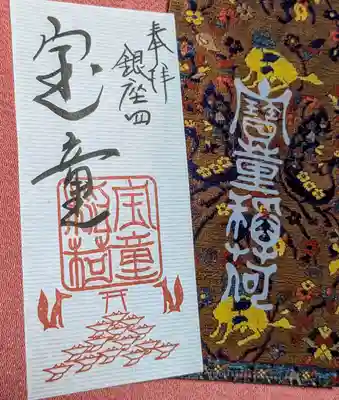 奉拝
銀座四
宝童
宝童
稲荷
寳童稲荷